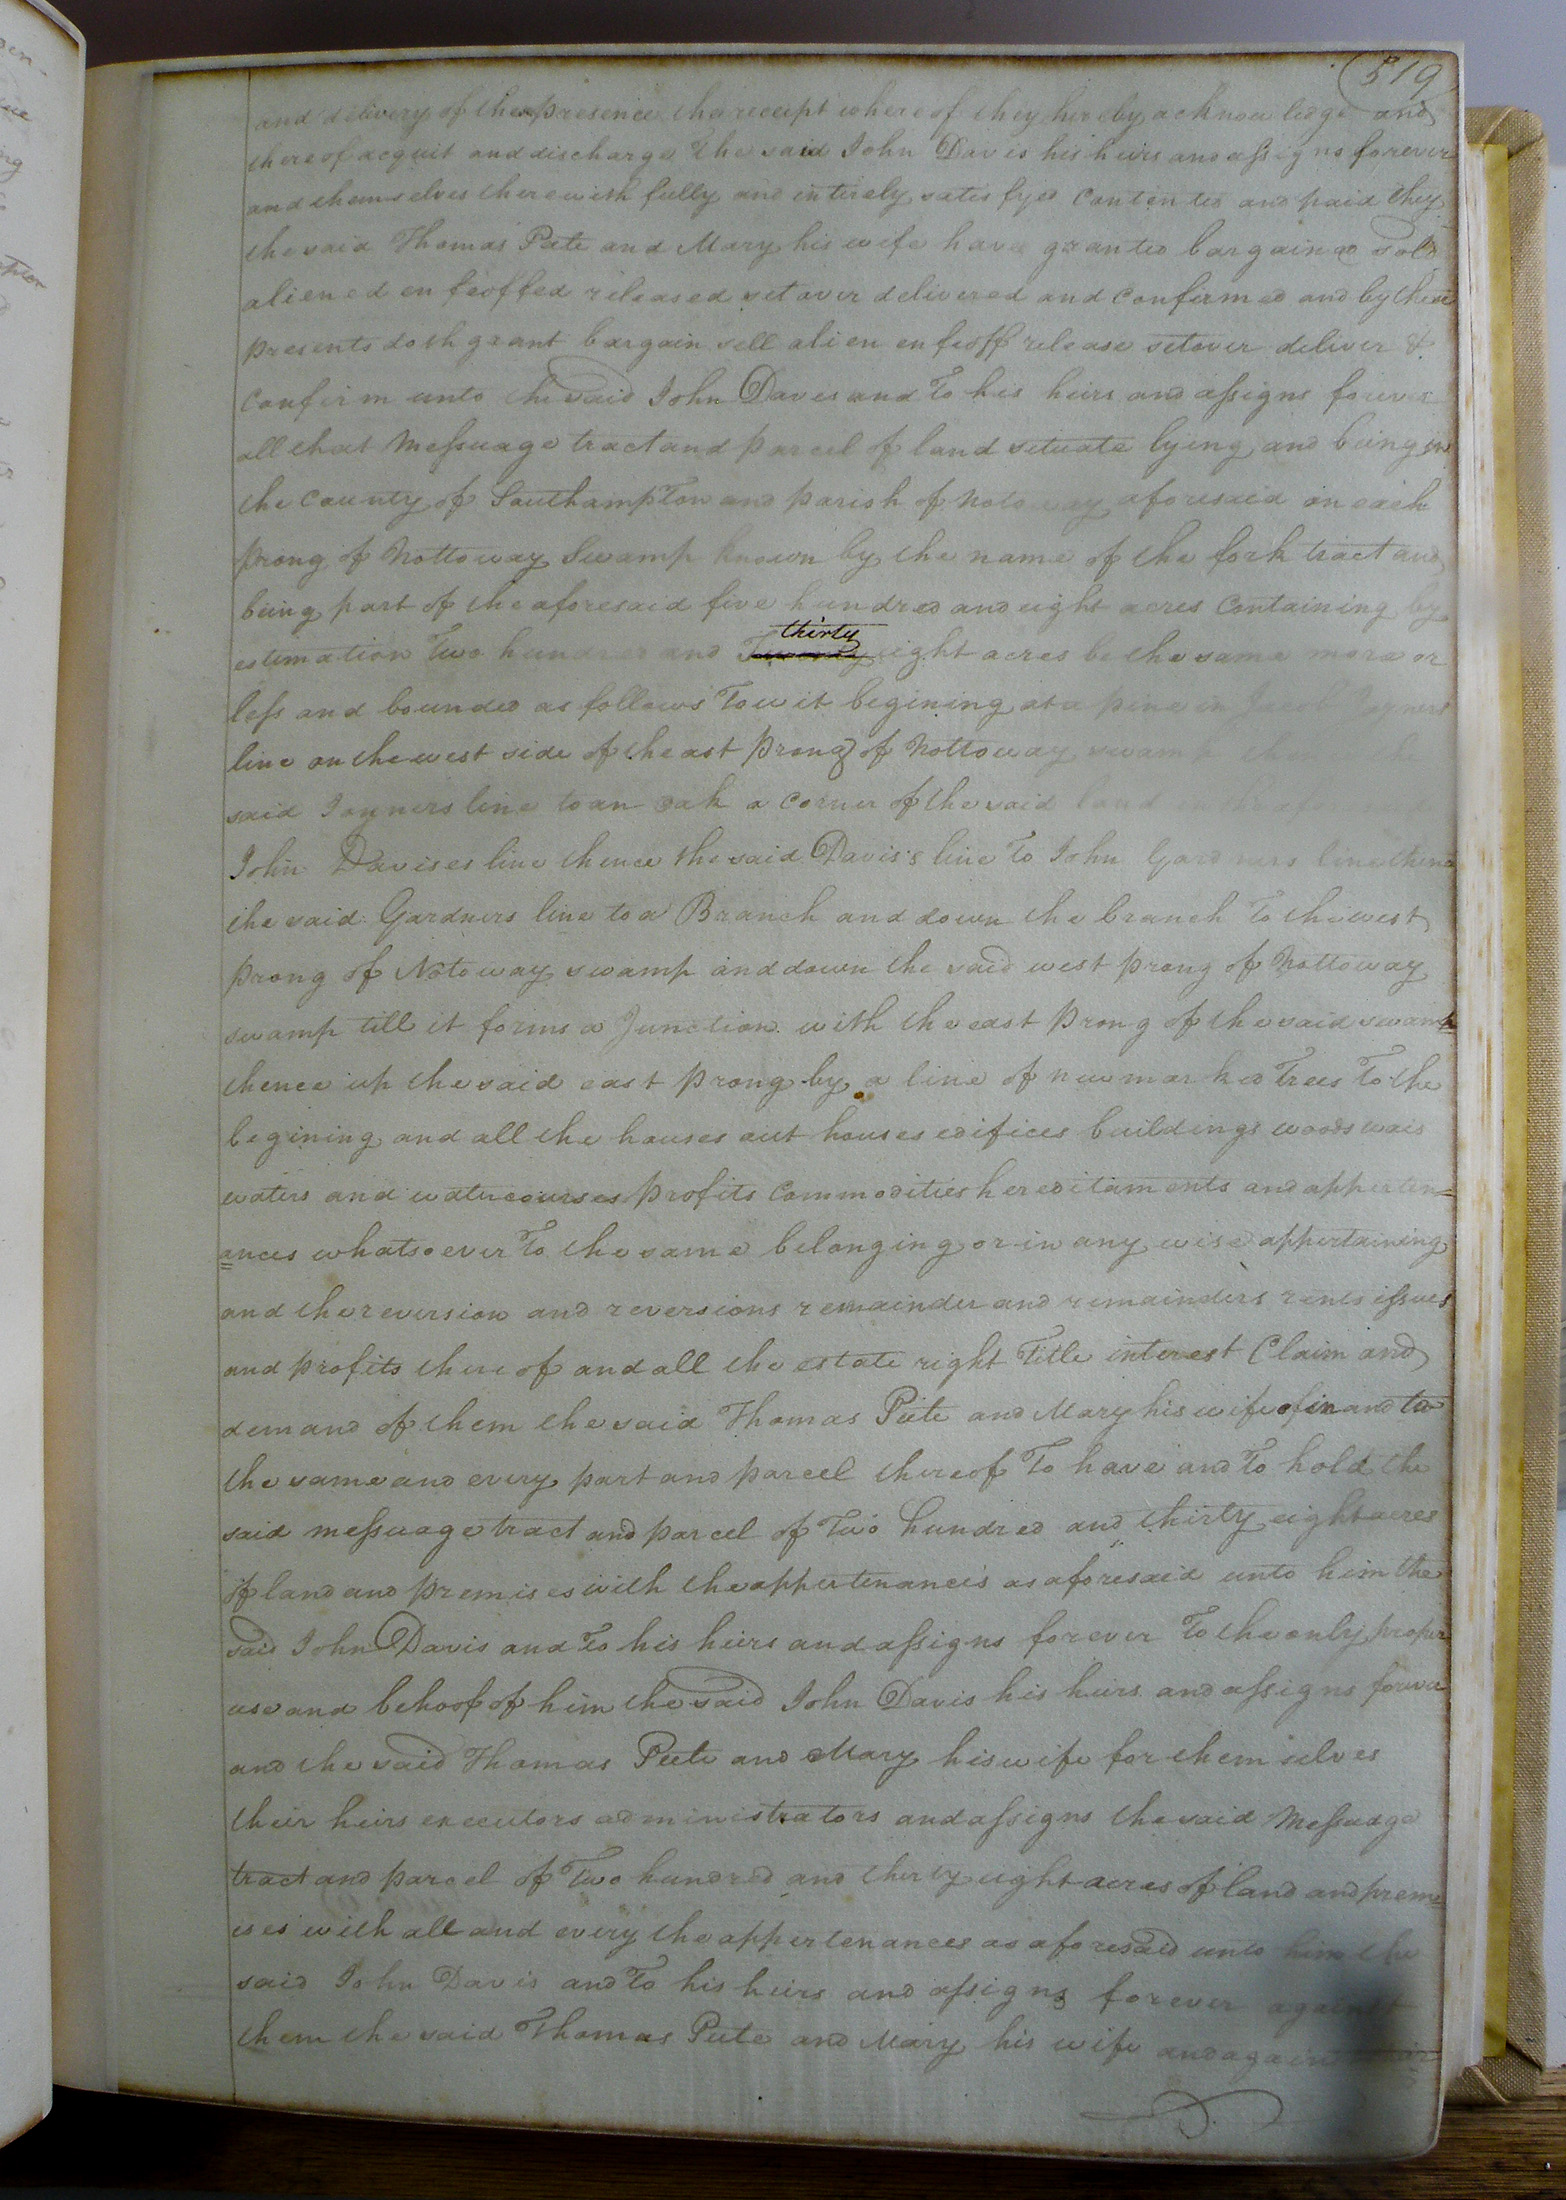 519
and delivery of these presence the receipt whereof they hereby acknowledge and
thereof acquit and discharge the said John Davis his heirs and assigns forever
and themselves therewith fully and intirely satisfyed contented and paid they
the said Thomas Pete and Mary his wife have granted bargained sold
aliened enfeoffed released setover delivered and confirmed and by these
presents doth grant bargain sell alien enfeoff release setover deliver &
confirm unto the said John Davis and To his heirs and assigns forever
all that Messuage tract and parcel of land situate lying and being in
the County of Southampton and parish of aforesaid on each
prong of Nottoway Swamp known by the name of the fork tract and
being part of the aforesaid five hundred and eight acres Containing by
estimation Two hundred and thirty eight acres be the same more or
less and bounded as follows Towit begining at a pine in Jacob Joyners
line on the west side of the east prong of Nottoway swamp
said Joyners line to an oak a corner of the said land
John Davises line thence the said Davis's line To John Gardners line thence
the said Gardners line to a Branch and down the branch To the west
prong of Notoway swamp and down the said west prong of Nottoway
swamp till it forms a Junction with the east prong of the said swamp
thence up the said east prong by a line of new marked Trees To the
begining and all the houses out houses edifices buildings woods wais
waters and watercourses profits Commodities hereditaments and apperten=
=ances whatsoever To the same belonging or in any wise appertaining
and the reversion and reversions remainder and remainders rents issues
and profits there of and all the estate right Title interest Claim and
demand of them the said Thomas Peete and Mary his wife of in and to
the same and every part and parcel thereof To have and To hold the
said messuage tract and parcel of Two hundred and thirty eight acres
of land and premises with the appertenances as aforesaid unto him the
said John Davis and To his heirs and assigns forever To the only proper
use and behoof of him the said John Davis his heirs and assigns forever
and the said Thomas Peete and Mary his wife for themselves
their heirs executors administrators and assigns the said Messuage
tract and parcel of Two hundred and thirty eight acres of land and prem=
ises with all and every the appertenances as aforesaid unto him the
said John Davis and To his heirs and assigns forever against
them the said Thomas Peete and Mary his wife and against